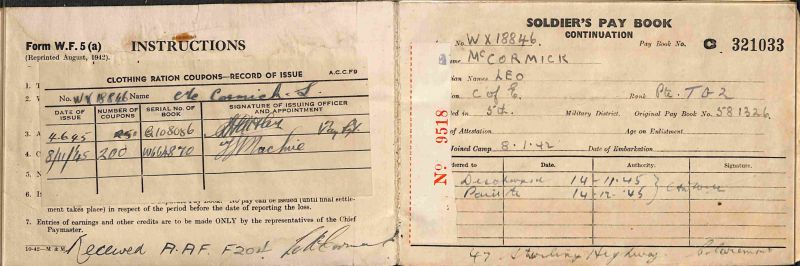 Form W.F. 5 (a)
(Reprinted August, 1942).
INSTRUCTIONS
CLOTHING RATION COUPONS—RECORD OF ISSUE
A.C.C.F9
No. WX18846 Name Mc Cormick. L.
DATE OF ISSUE NUMBER OF COUPONS SERIAL No. OF BOOK SIGNATURE OF ISSUING OFFICER AND APPOINTMENT
4.6.45 G108086
8/11/45 200 W664870
1. T
2.
3. A
4. C
5.
6. I
Pay Book. No pay can be issued (until final settle-
ment takes place) in respect of the period before the date of reporting the loss.
7. Entries of earnings and other credits are to be made ONLY by the representatives of the Chief
Paymaster.
10-42—M & M
Received A.A.F. F204
SOLDIER'S PAY BOOK
CONTINUATION
No. WX18846. Pay Book No. C 321033
me McCORMICK
ian Names LEO
on C of E. Rank Pte. TG2
ed in 5th. Military District. Original Pay Book No. 581326.
of Attestation Age on Enlistment
Joined Camp 8.1.42 Date of Embarkation
No 9518
dered to Date. Authority. Signature.
Discharged 14-11-45
14-12-45
47 Stirling Highway Claremont